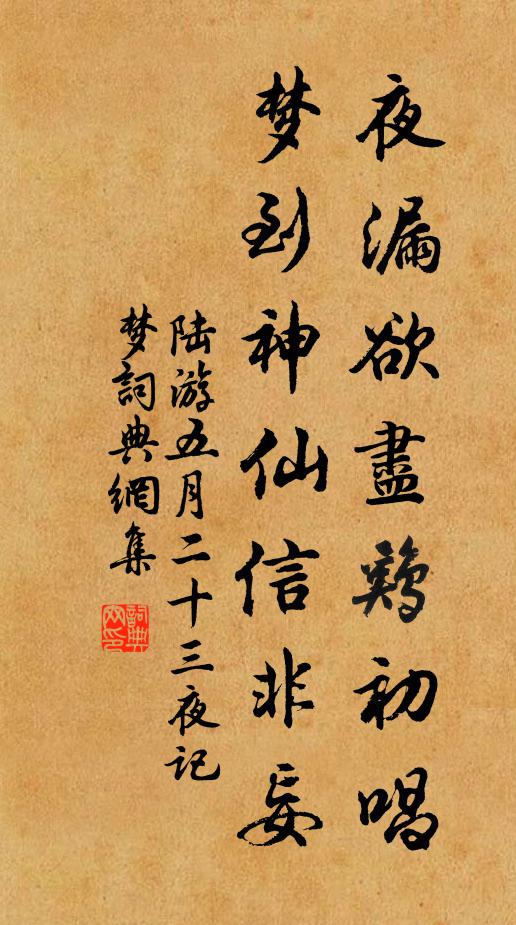 夜漏欲盡鷄初唱
梦到神仙信非妄
陆游五月二十三夜记
梦詞典網集
詞典網印